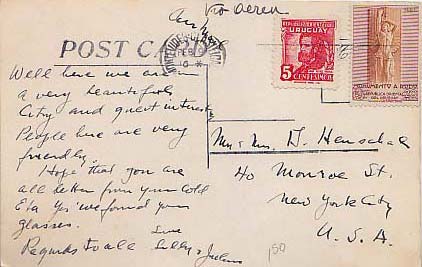 Via Aerea
Air Mail
POST CA
MONTEVIDEO
URUGUAY
5
CENTESIMOS
MONUMENTO A RODO
REPUBLICA ORIENTAL
DEL URUGUAY
Well here we are in
a very beautiful
City and quiet interests
People here are very
friendly.
Hope that you are
all better from your cold
Eta yes we found your
glasses.
Love
Regards to all Lilly & Julius
Mr & Mrs. D. Henschel
40 Monroe St.
New York City
U. S. A.
150